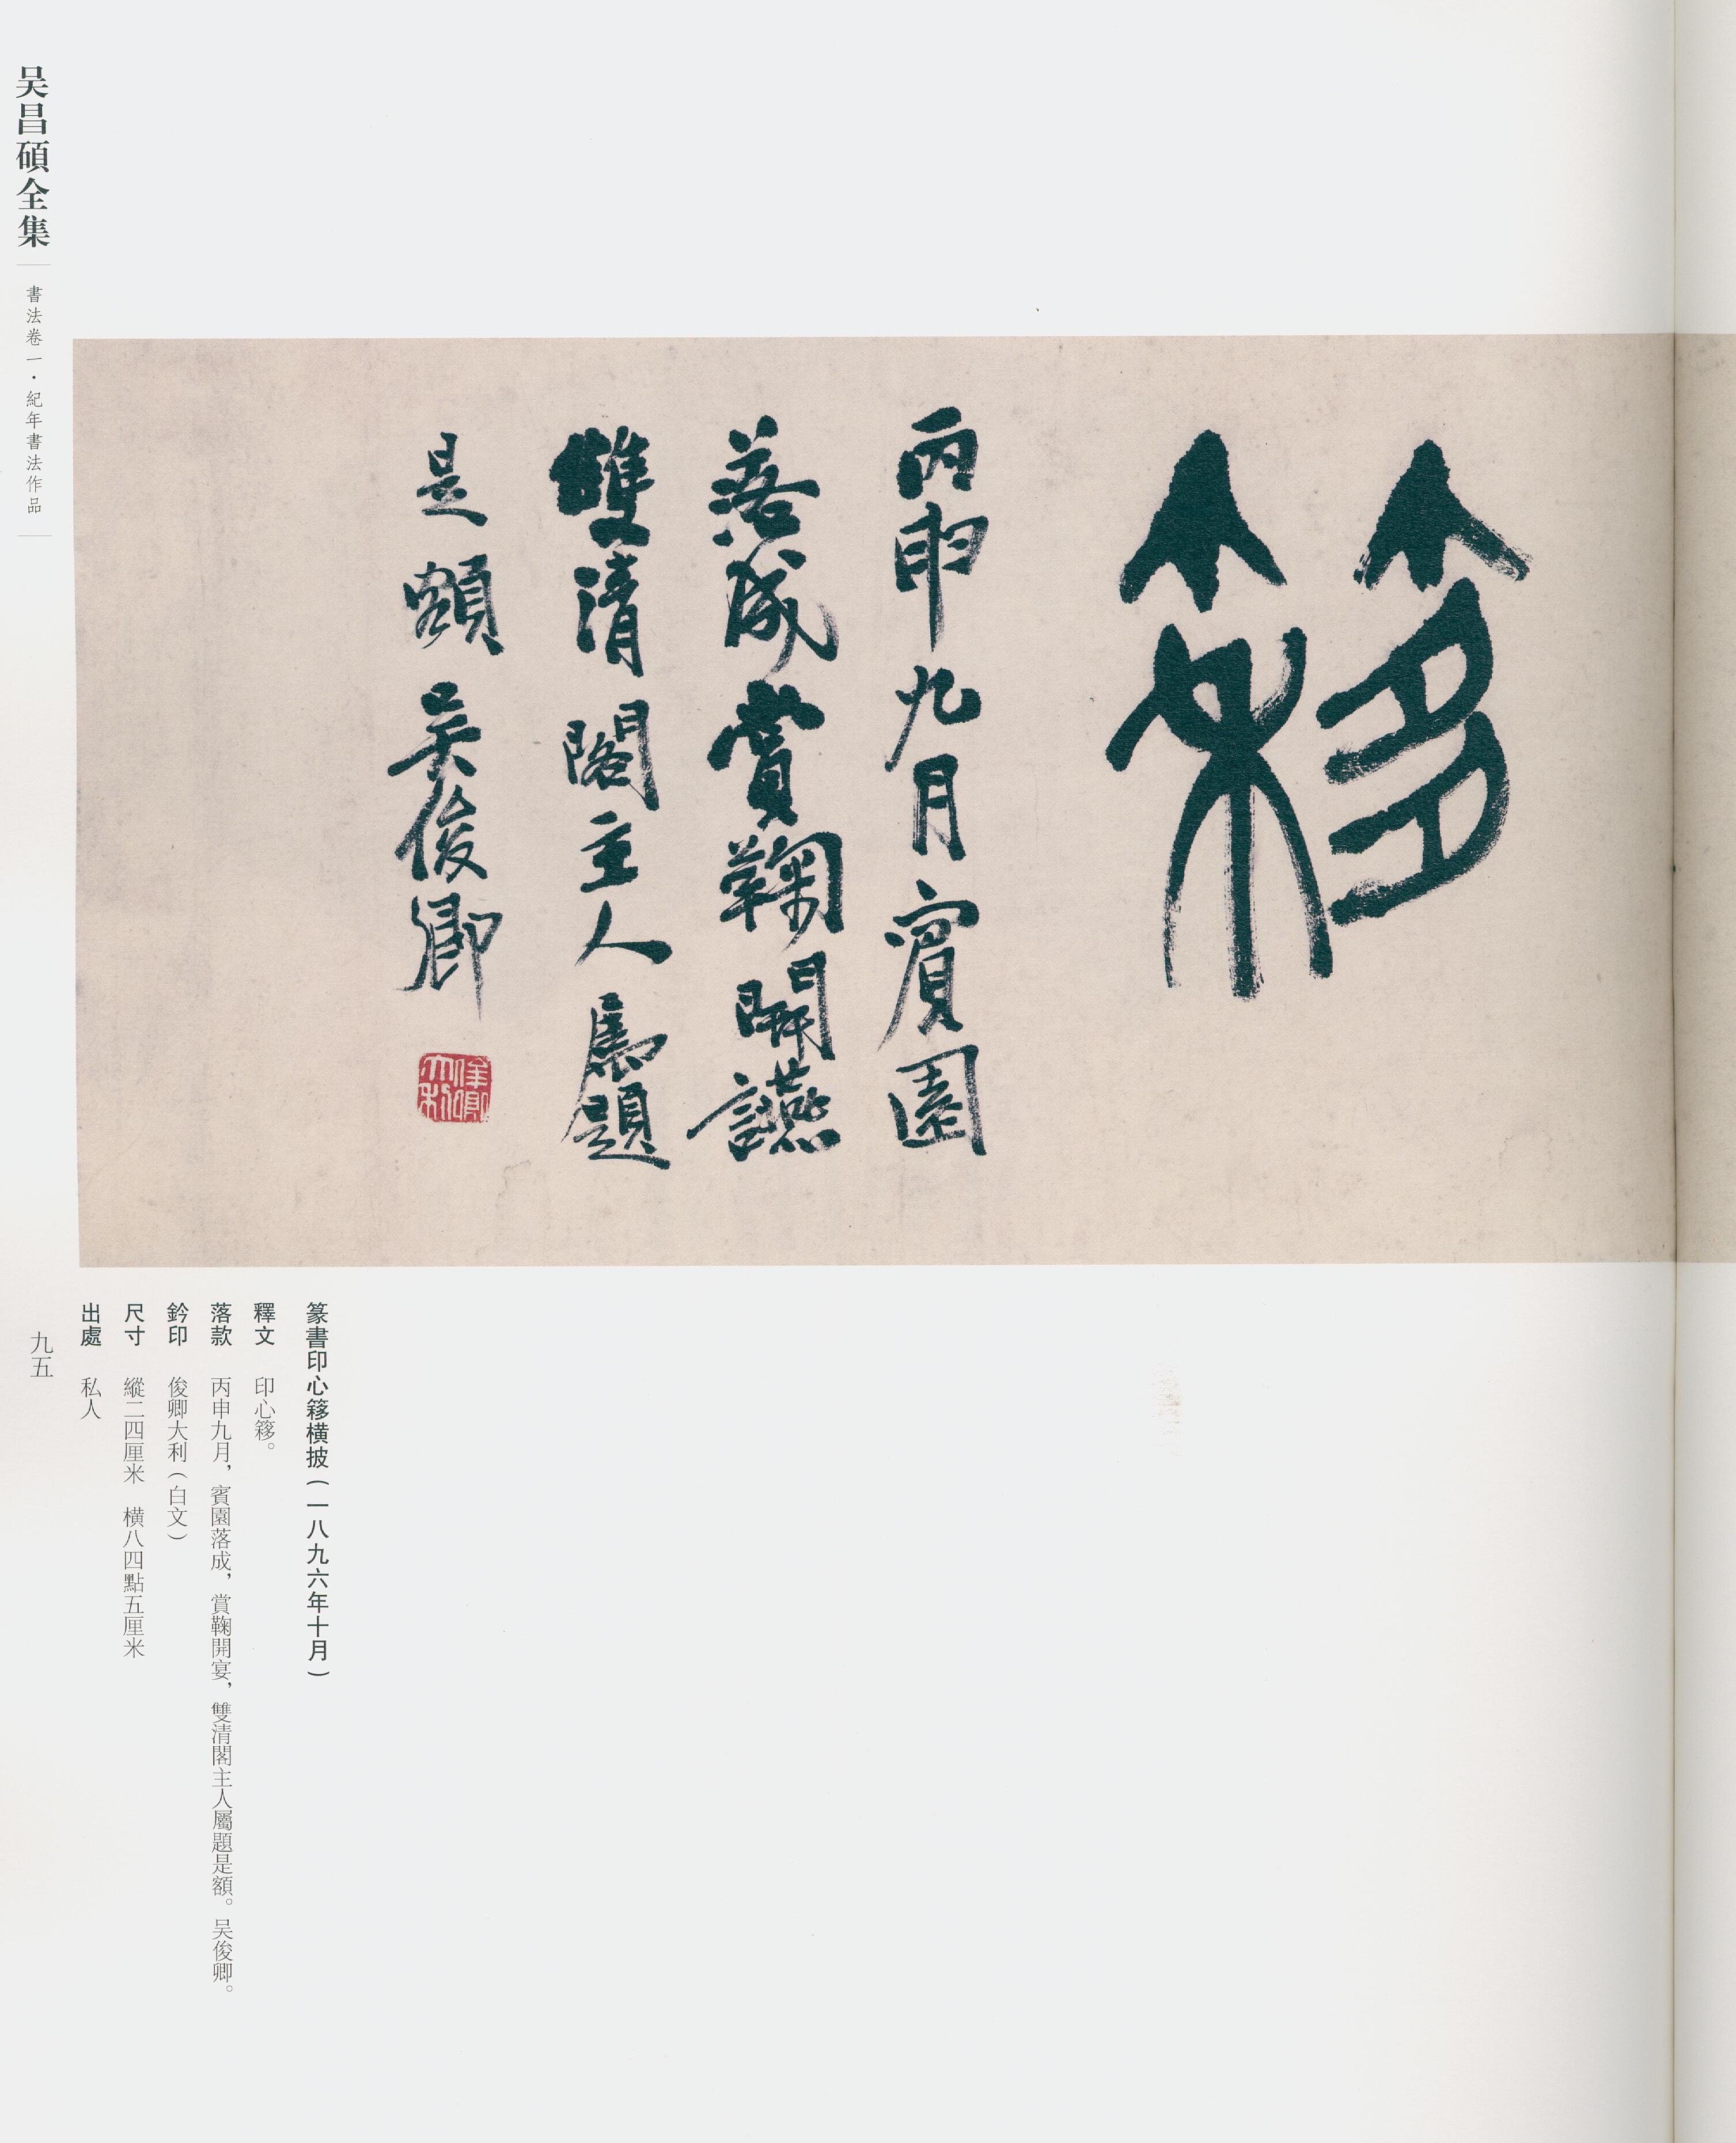 簃
丙申九月賓園
落成賞鞠開讌
雙清閣主人屬題
是額吳俊卿
俊卿
大利
篆書印心簃橫披(一八九六年十月)
釋文 印心簃。
落款 丙申九月，賓園落成，賞鞠開宴，雙清閣主人屬題是額。吴俊卿。
鈐印 俊卿大利(白文)
尺寸 縱二四厘米 橫八四點五厘米
出處 私人
吴昌碩全集
書法卷一·紀年書法作品
九五